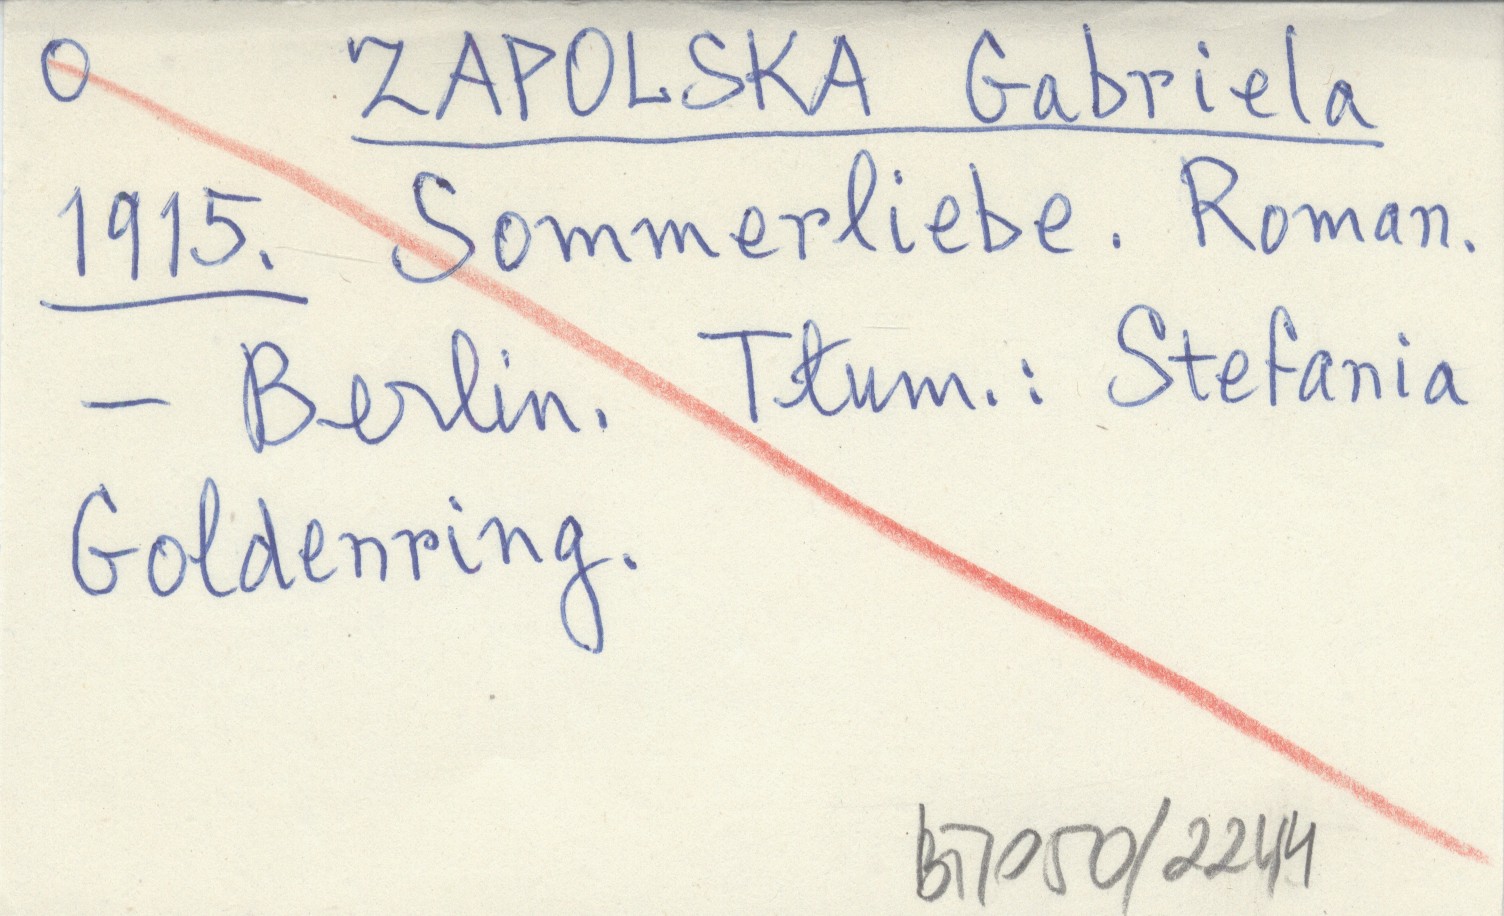 O ZAPOLSKA Gabriela
1915. Sommerliebe. Roman.
- Berlin. Tłum.: Stefania
Goldenring.